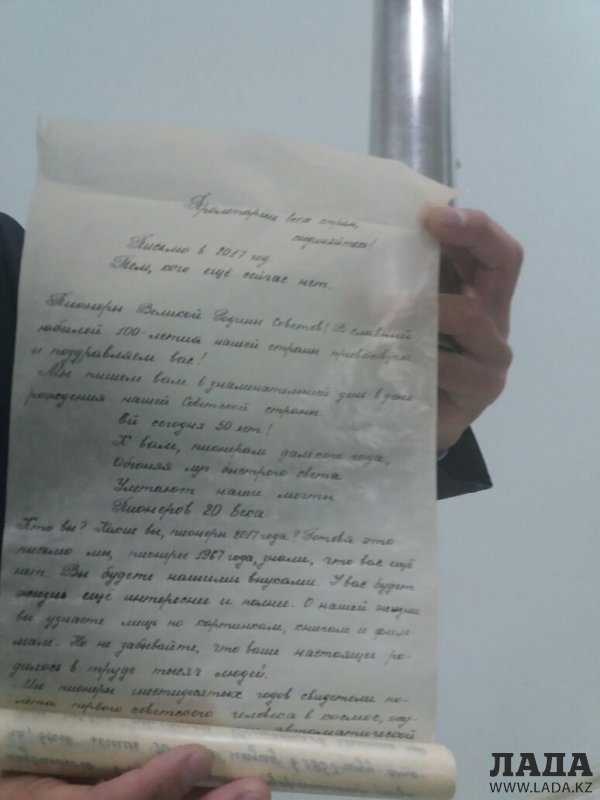 Пролетарии всех стран,
соединяйтесь!
Письмо в 2017 год.
Тем, кого ещё сейчас нет.
Пионеры Великой Родины Советов! В славный
юбилей 100-летия нашей страны приветствуем
и поздравляем вас!
Мы пишем вам в знаменательный день в день
рождения нашей Советской страны.
Ей сегодня 50 лет!
К вам, пионерам далёкого года,
Обгоняя луч быстрого света
Улетают наши мечты
Пионеров 20 века.
Кто вы? Какие вы, пионеры 2017 года? Готовя это
письмо мы, пионеры 1967 года, знали, что вас ещё
нет Вы будете нашими внуками. У вас будет
жизнь ещё интереснее и полнее. О нашей жизни
вы узнаете лишь по картинкам, книгам и филь
мам. Но не забывайте, что ваше настоящее ро-
дилось в труде тысяч людей.
Мы пионеры шестидесятых годов свидетели по-
лёта первого советского человека в космос,
автоматической
в 1967 году
ЛАДА
WWW.LADA.KZ